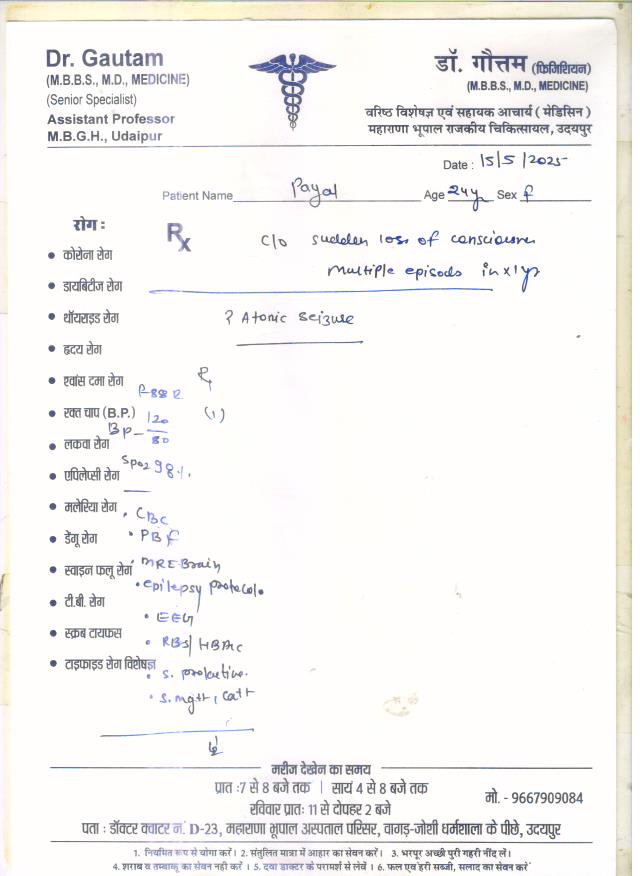 Dr. Gautam
(M.B.B.S., M.D., MEDICINE)
(Senior Specialist)
Assistant Professor
M.B.G.H., Udaipur
डॉ. गौत्तम (फिजिशियन)
(M.B.B.S., M.D., MEDICINE)
वरिष्ठ विशेषज्ञ एवं सहायक आचार्य ( मेडिसिन )
महाराणा भूपाल राजकीय चिकित्सायल, उदयपुर
Date : 15/5/2025
Patient Name Payal Age 24y Sex f
रोग :
Rx
C/O sudden loss of conscious
multiple episods in x 1 yr
? Atonic seizure
• कोरोना रोग
• डायबिटीज रोग
• थॉयराइड रोग
• हृदय रोग
• श्वांस दमा रोग
Rx
P-88 R
• रक्त चाप (B.P.)
(1)
BP - 120/80
• लकवा रोग
SpO2 98%
• एपिलेप्सी रोग
• मलेरिया रोग
• CBC
• डेंगू रोग
• PBf
• स्वाइन फलू रोग
MRI Brain
• epilepsy protocol.
• टी.बी. रोग
• EEG
• स्क्रब टायफस
• RBS/HBA1c
• टाइफाइड रोग विशेषज्ञ
• S. prolactine.
• S. mg++, Ca++
मरीज देखेन का समय
प्रात :7 से 8 बजे तक | सायं 4 से 8 बजे तक
रविवार प्रातः 11 से दोपहर 2 बजे
मो. - 9667909084
पता : डॉक्टर क्वाटर नं. D-23, महाराणा भूपाल अस्पताल परिसर, वागड़-जोशी धर्मशाला के पीछे, उदयपुर
1. नियमित रूप से योगा करें। 2. संतुलित मात्रा में आहार का सेवन करें। 3. भरपूर अच्छी पुरी गहरी नींद लें।
4. शराब व तम्बाकू का सेवन नही करें । 5. दवा डाक्टर के परामर्श से लेवें । 6. फल एवं हरी सब्जी, सलाद का सेवन करें